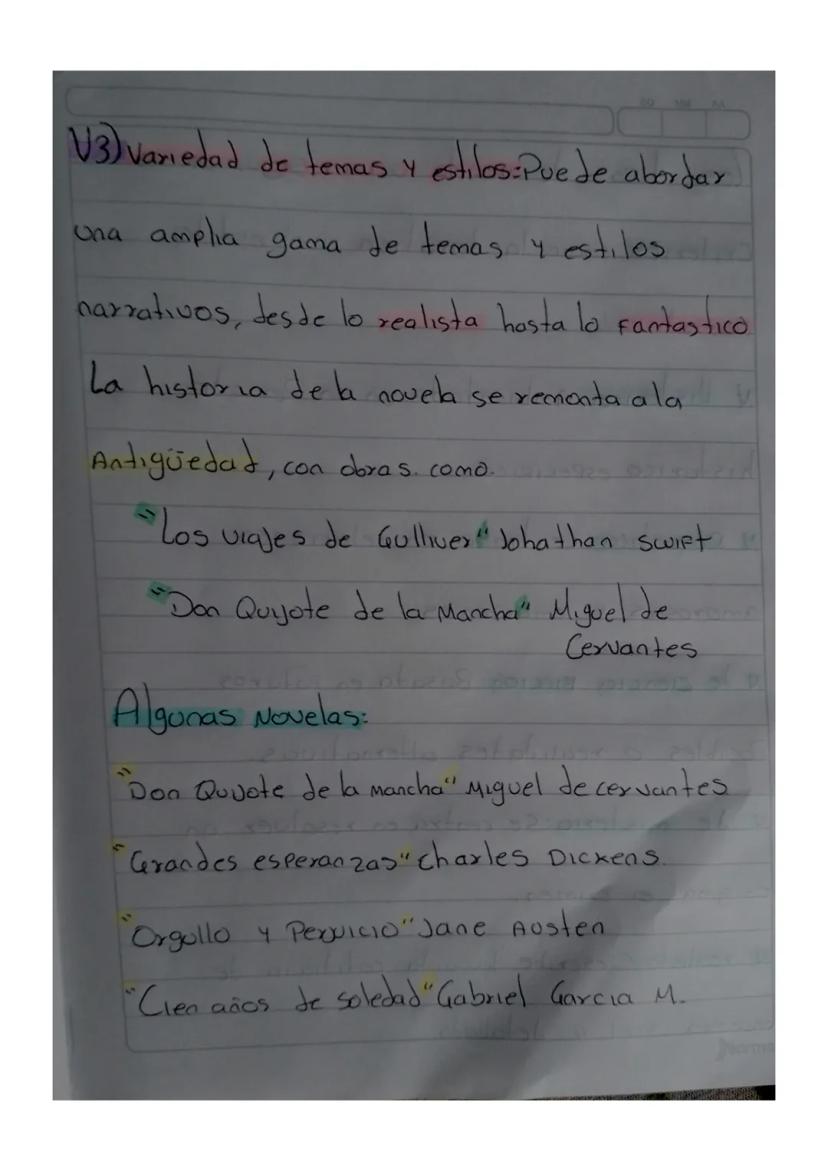 V3) Variedad de temas y estilos: Puede abordar
una amplia gama de temas y estilos
narrativos, desde lo realista hasta lo Fantastico
La historia de la novela se remonta a la
Antigüedad, con obras. como.
"Los viajes de Gulliver" Johathan swift
"Don Quijote de la Mancha" Miguel de
Cervantes
Algunas Novelas:
"Don Quijote de la mancha" Miguel de cervantes
"Grandes esperanzas" charles Dickens.
"Orgullo y Perjuicio" Jane Austen
"Cien años de soledad" Gabriel Garcia M.
Norma